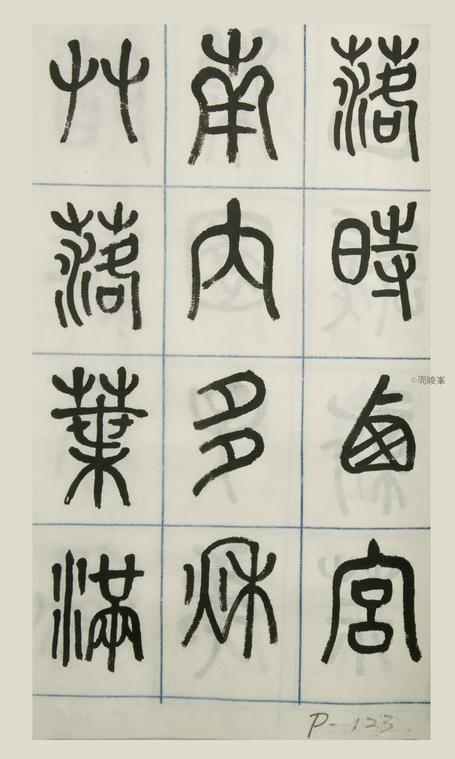 落時西宮
南內多秋
艸落葉滿
©周峻峯
P-123